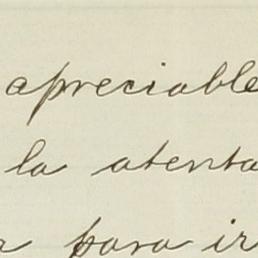 apreciable
la atenta
para ir